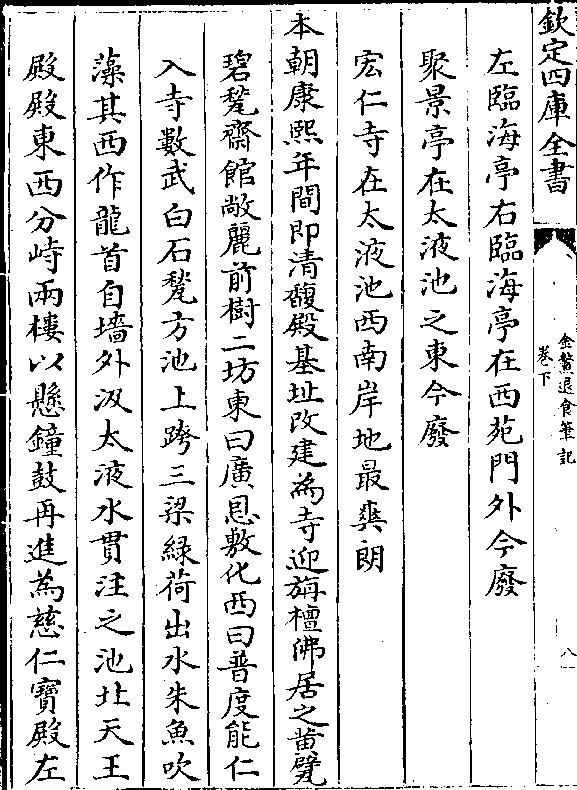 欽定四庫全書
金鰲退食筆記
卷下
八
左臨海亭右臨海亭在西苑門外今廢
聚景亭在太液池之東今廢
宏仁寺在太液池西南岸地最爽朗
本朝康熙年間即清馥殿基址改建為寺迎旃檀佛居之黄甓
碧甃齋館敞麗前樹二坊東曰廣恩敷化西曰普度能仁
入寺數武白石甃方池上跨三梁緑荷出水朱魚吹
藻其西作龍首自墻外汲太液水貫注之池北天王
殿殿東西分峙兩樓以懸鐘鼓再進為慈仁寶殿左